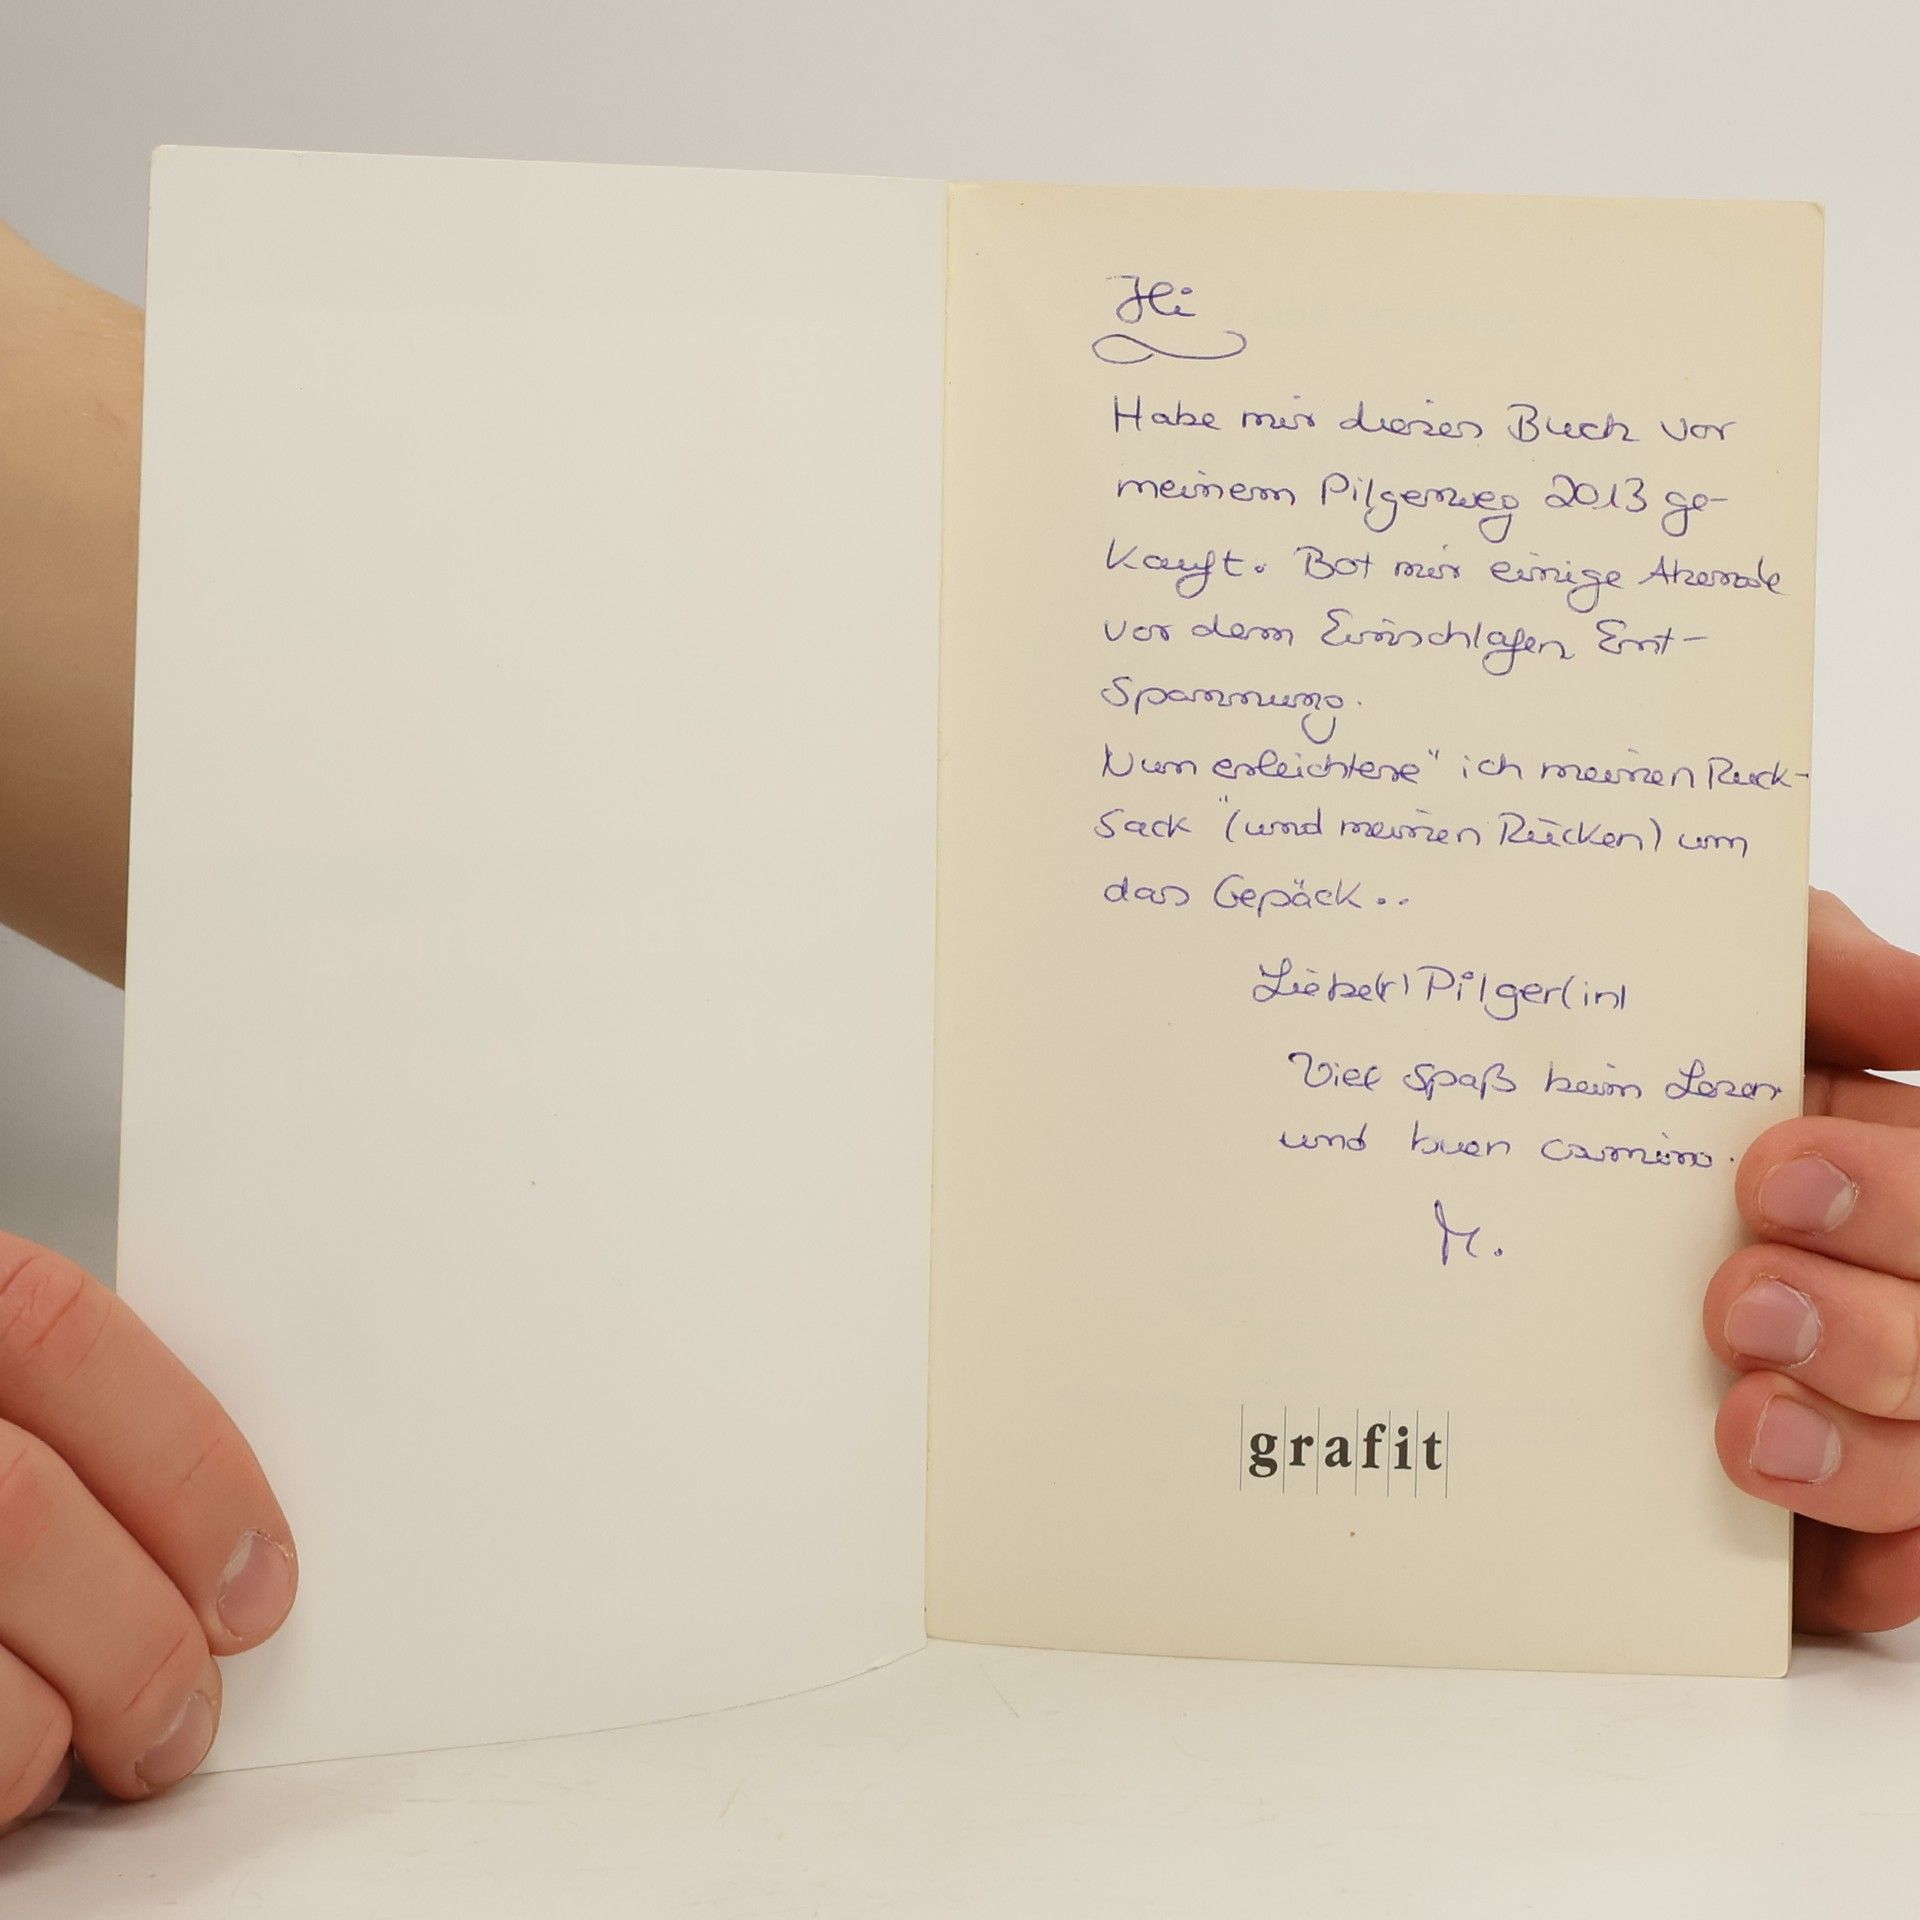 Hi
Habe mir dieses Buch vor
meinem Pilgerweg 2013 ge-
kauft. Bot mir einige Abende
vor dem Einschlafen Ent-
spannung.
Nun erleichtere" ich meinen Ruck-
sack "(und meinen Rücken) um
das Gepäck..
Liebe(r) Pilger(in)
Viel Spaß beim Lesen
und buen camino.
M.
grafit